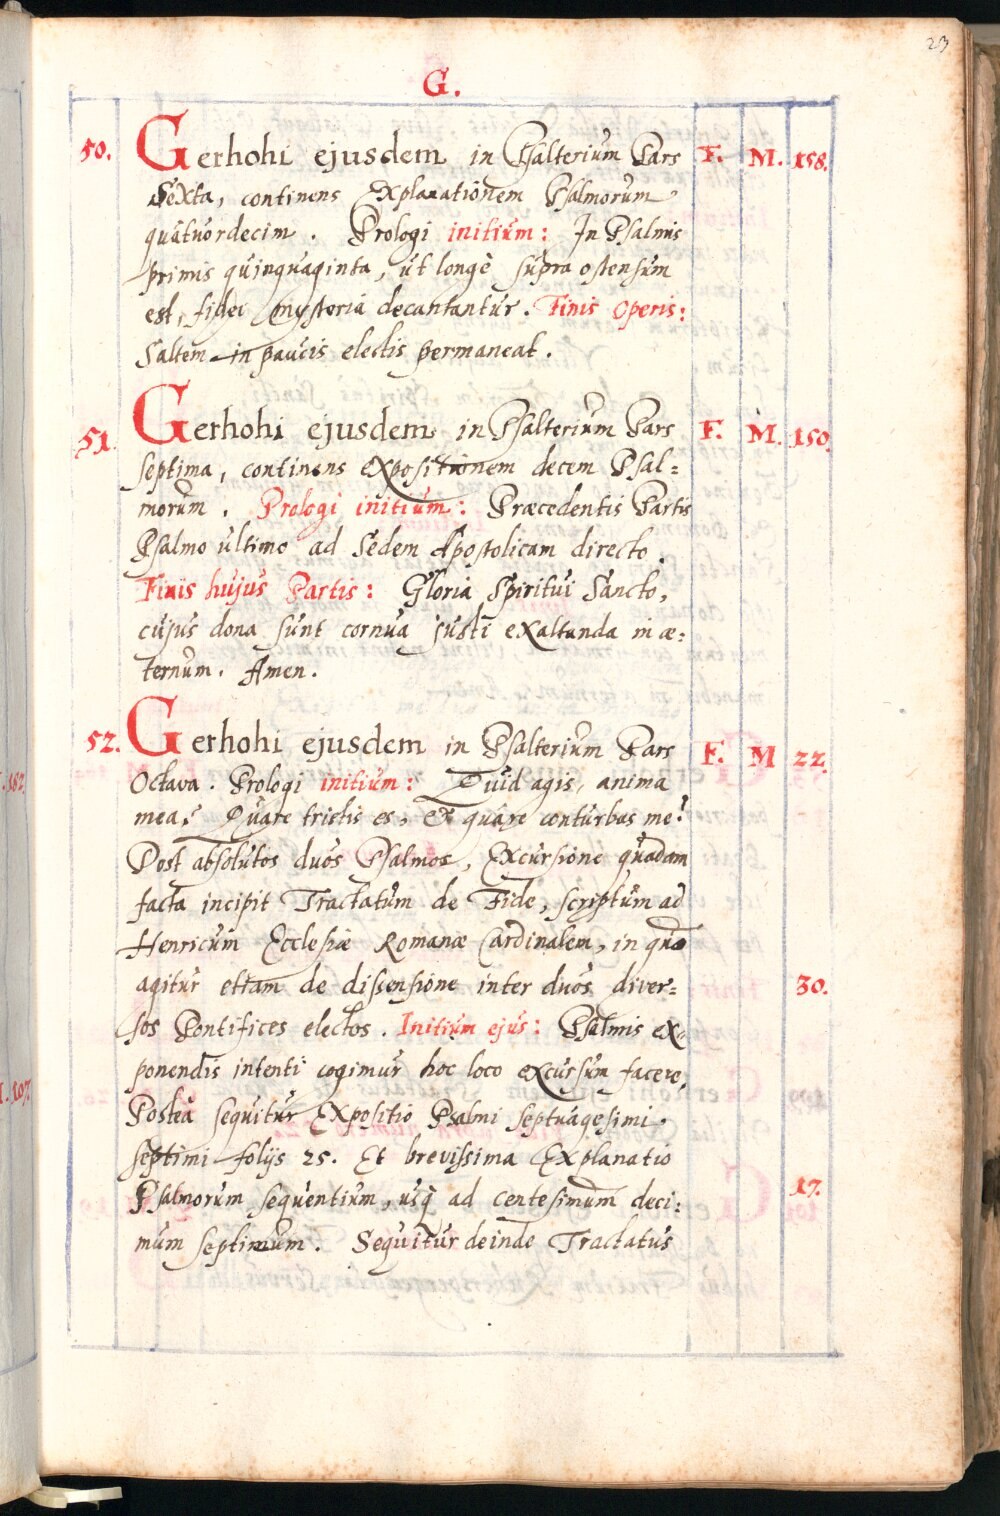 23
G.
50. Gerhohi ejusdem in Psalterium Pars F. M. 158.
Sexta, continens Explanationem Psalmorum
quatuordecim. Prologi initium: In Psalmis
primis quinquaginta, ut longè supra ostensum
est, fidei mysteria decantantur. Finis Operis:
Saltem in paucis electis permaneat.
51. Gerhohi ejusdem in Psalterium Pars F. M. 150.
septima, continens expositionem decem Psal=
morum. Prologi initium: Præcedentis Partis
Psalmo ultimo ad Sedem Apostolicam directo.
Finis hujus Partis: Gloria Spiritui Sancto,
cujus dona sunt cornua justi exaltanda in æ=
ternum. Amen.
52. Gerhohi ejusdem in Psalterium Pars F. M 22.
Octava. Prologi initium: Quid agis, anima
mea? Quare tristis es, et quare conturbas me?
Post absolutos duos Psalmos, Excursione quadam
facta incipit Tractatum de Fide, scriptum ad
Henricum Ecclesiæ Romanæ Cardinalem, in quo
agitur etiam de dissensione inter duos diver= 30.
sos Pontifices electos. Initium ejus: Psalmis ex=
ponendis intenti cogimur hoc loco excursum facere.
Postea sequitur Expositio Psalmi septuagesimi
septimi folijs 25. Et brevissima Explanatio
Psalmorum sequentium, usq ad centesimum deci= 17.
mum septimum. Sequitur deinde Tractatus
.182.
.107.